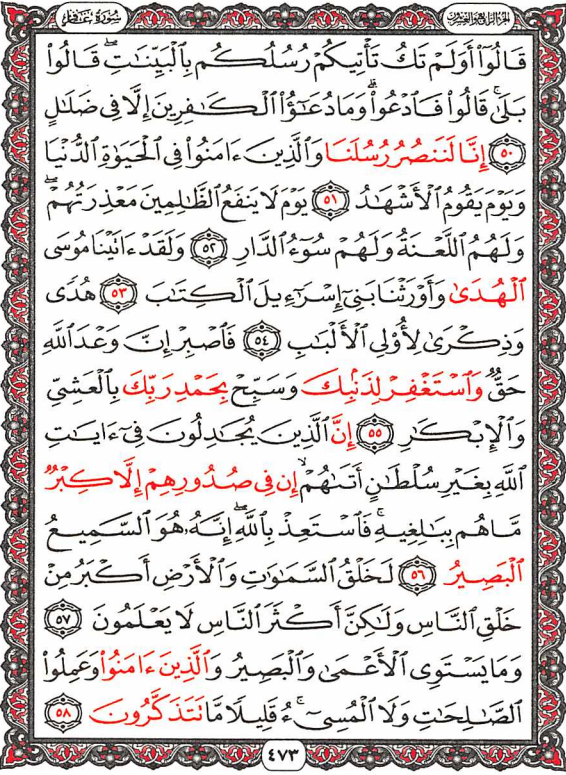 سورة غافر الجزء الرابع والعشرون
قَالُوٓا۟ أَوَلَمْ تَكُ تَأْتِيكُمْ رُسُلُكُم بِٱلْبَيِّنَٰتِ ۖ قَالُوا۟
بَلَىٰ ۚ قَالُوا۟ فَٱدْعُوا۟ ۗ وَمَا دُعَٰٓؤُا۟ ٱلْكَٰفِرِينَ إِلَّا فِى ضَلَٰلٍ
٥٠ إِنَّا لَنَنصُرُ رُسُلَنَا وَٱلَّذِينَ ءَامَنُوا۟ فِى ٱلْحَيَوٰةِ ٱلدُّنْيَا
وَيَوْمَ يَقُومُ ٱلْأَشْهَٰدُ ٥١ يَوْمَ لَا يَنفَعُ ٱلظَّٰلِمِينَ مَعْذِرَتُهُمْ ۖ
وَلَهُمُ ٱللَّعْنَةُ وَلَهُمْ سُوٓءُ ٱلدَّارِ ٥٢ وَلَقَدْ ءَاتَيْنَا مُوسَى
ٱلْهُدَىٰ وَأَوْرَثْنَا بَنِىٓ إِسْرَٰٓءِيلَ ٱلْكِتَٰبَ ٥٣ هُدًى
وَذِكْرَىٰ لِأُو۟لِى ٱلْأَلْبَٰبِ ٥٤ فَٱصْبِرْ إِنَّ وَعْدَ ٱللَّهِ
حَقٌّ وَٱسْتَغْفِرْ لِذَنۢبِكَ وَسَبِّحْ بِحَمْدِ رَبِّكَ بِٱلْعَشِىِّ
وَٱلْإِبْكَٰرِ ٥٥ إِنَّ ٱلَّذِينَ يُجَٰدِلُونَ فِىٓ ءَايَٰتِ
ٱللَّهِ بِغَيْرِ سُلْطَٰنٍ أَتَىٰهُمْ ۙ إِن فِى صُدُورِهِمْ إِلَّا كِبْرٌ
مَّا هُم بِبَٰلِغِيهِ ۚ فَٱسْتَعِذْ بِٱللَّهِ ۖ إِنَّهُۥ هُوَ ٱلسَّمِيعُ
ٱلْبَصِيرُ ٥٦ لَخَلْقُ ٱلسَّمَٰوَٰتِ وَٱلْأَرْضِ أَكْبَرُ مِنْ
خَلْقِ ٱلنَّاسِ وَلَٰكِنَّ أَكْثَرَ ٱلنَّاسِ لَا يَعْلَمُونَ ٥٧
وَمَا يَسْتَوِى ٱلْأَعْمَىٰ وَٱلْبَصِيرُ وَٱلَّذِينَ ءَامَنُوا۟ وَعَمِلُوا۟
ٱلصَّٰلِحَٰتِ وَلَا ٱلْمُسِىٓءُ ۚ قَلِيلًا مَّا تَتَذَكَّرُونَ ٥٨
٤٧٣